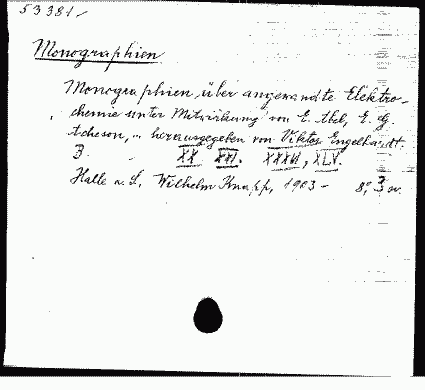 53381-
Monographien
Monographien über angewandte Elektro-
chemie unter Mitwirkung von E. Abel, E. G.
Acheson, ... herausgegeben von Viktor Engelhardt.
3. XX XXI. XXXVI, XLV.
Halle a. S., Wilhelm Knapp, 1903 - 8°, 3 w.